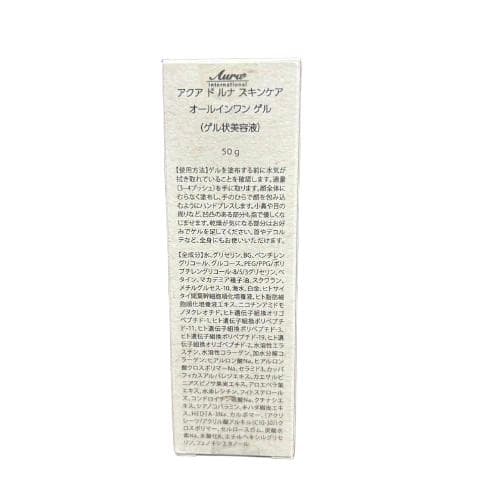 Aura
International
アクア ド ルナ スキンケア
オールインワン ゲル
(ゲル状美容液)
50g
【使用方法】ゲルを塗布する前に水気が
拭き取れていることを確認します。適量
(3~4プッシュ)を手に取ります。顔全体に
むらなく塗布し、手のひらで顔を包み込
むようにハンドプレスします。小鼻や目の
周りなど、凹凸のある部分も指で優しくな
じませます。乾燥が気になる部分はお好
みでゲルを足してください。首やデコル
テなど、全身にもお使いいただけます。
【全成分】水、グリセリン、BG、ペンチレン
グリコール、グルコース、PEG/PPG/ポリ
ブチレングリコール-8/5/3グリセリン、ベ
タイン、マカデミア種子油、スクワラン、
メチルグルセス-10、海水、白金、ヒトサイ
タイ間葉幹細胞順化培養液、ヒト脂肪細
胞順化培養液エキス、ニコチンアミドモ
ノヌクレオチド、ヒト遺伝子組換オリゴ
ペプチド-1、ヒト遺伝子組換ポリペプチ
ド-11、ヒト遺伝子組換ポリペプチド-3、
ヒト遺伝子組換ポリペプチド-19、ヒト遺
伝子組換オリゴペプチド-2、水溶性エラ
スチン、水溶性コラーゲン、加水分解コ
ラーゲン、ヒアルロン酸Na、ヒアルロン
酸クロスポリマーNa、セラミド3、カッパ
フィカスアルバレジエキス、カエサルピ
ニアスピノサ果実エキス、アロエベラ葉
エキス、水添レシチン、フィトステロール
ズ、コンドロイチン硫酸Na、クチナシエ
キス、シアノコバラミン、キハダ樹皮エキ
ス、HEDTA-3Na、カルボマー、(アクリ
レーツ/アクリル酸アルキル(C10-30))ク
ロスポリマー、セルロースガム、炭酸水
素Na、水酸化K、エチルヘキシルグリセ
リン、フェノキシエタノール